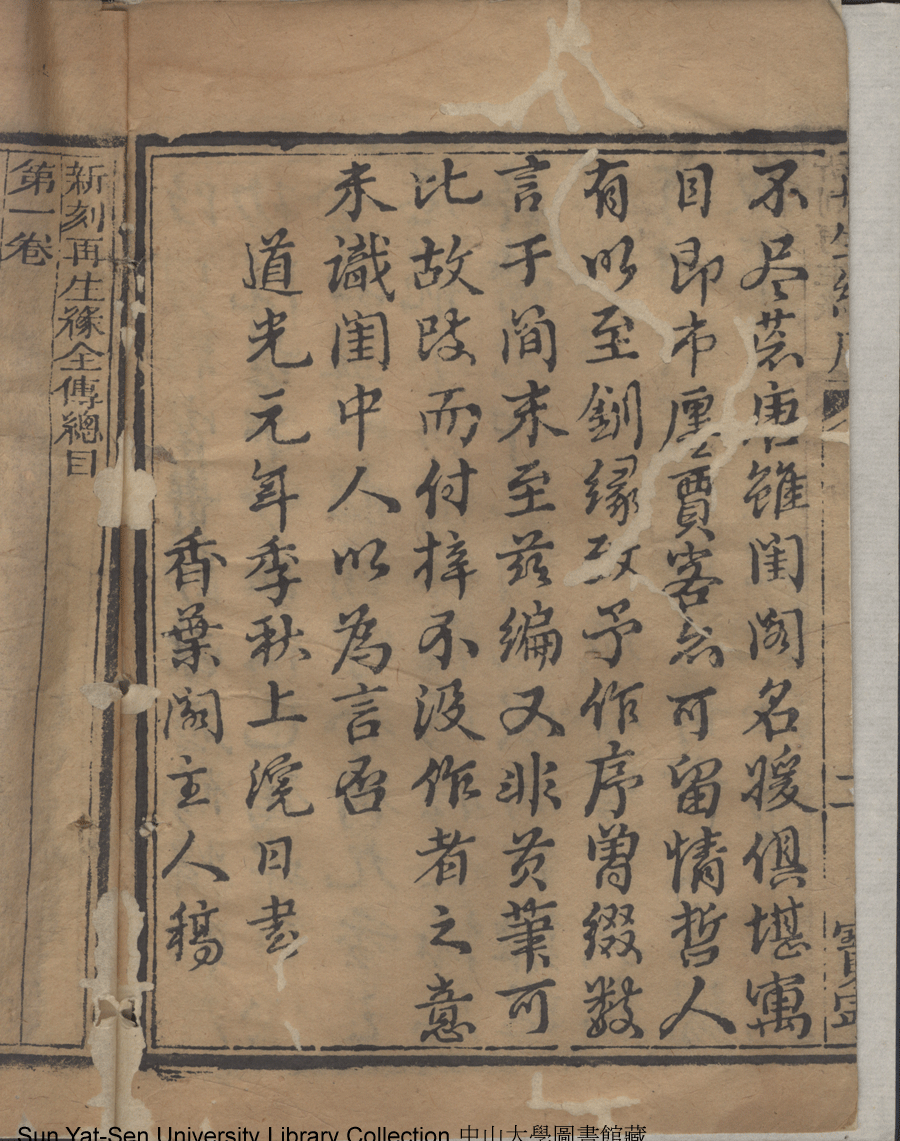 二
不尽荒唐雖閨閣名媛俱堪寓
目即市廛賈客亦可留情哲人
有以至釧緣故予作序曽綴数
言于簡末至茲編又非筆可
比故跋而付梓不没作者之意
未識閨中人以為言否
道光元年季秋上浣日書
香葉閣主人稿
新刻再生緣全傳總目
第一卷
Sun Yat-Sen University Library Collection 中山大學圖書館藏